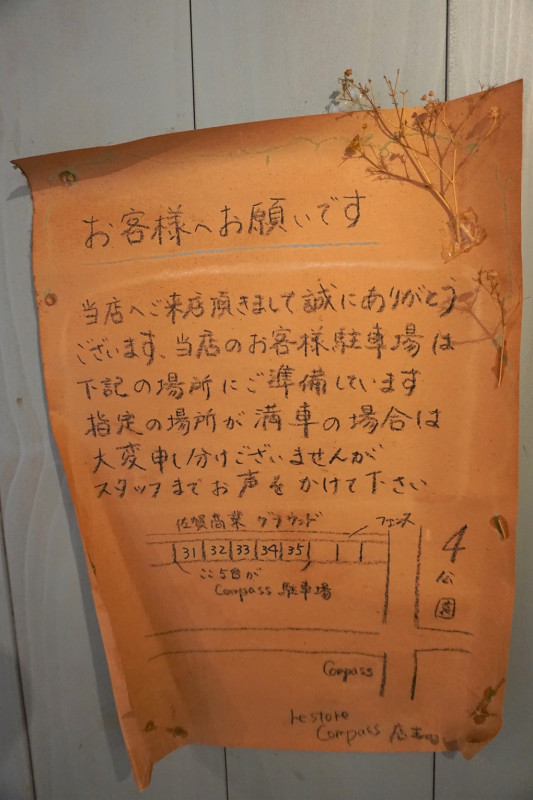 お客様へお願いです
当店へご来店頂きまして誠にありがとう
ございます、当店のお客様駐車場は
下記の場所にご準備しています
指定の場所が満車の場合は
大変申し分けございませんが
スタッフまでお声をかけて下さい
佐賀商業 グラウンド
フェンス
31 32 33 34 35
ここ5台が
Compass 駐車場
公園
Compass
restore
Compass 店